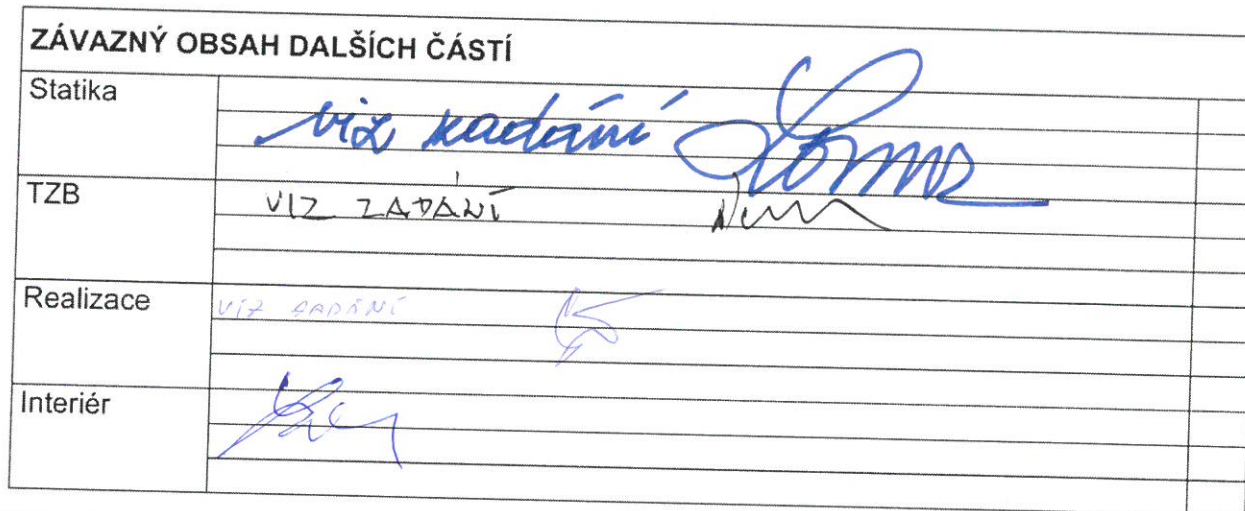 ZÁVAZNÝ OBSAH DALŠÍCH ČÁSTÍ
Statika
viz zadání
TZB
VIZ ZADÁNÍ
Realizace
VIZ ZADÁNÍ
Interiér